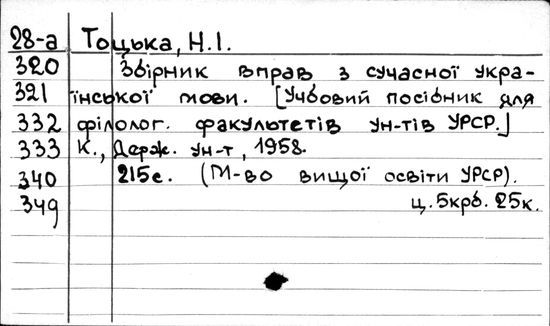 28-а Тоцька, Н.І.
320 Збірник вправ з сучасної укра-
321 їнської мови. [Учбовий посібник для
332 філолог. факультетів ун-тів УРСР.]
333 К., Держ. ун-т, 1958.
340 215с. (М-во вищої освіти УРСР).
349 ц. 5крб. 25к.